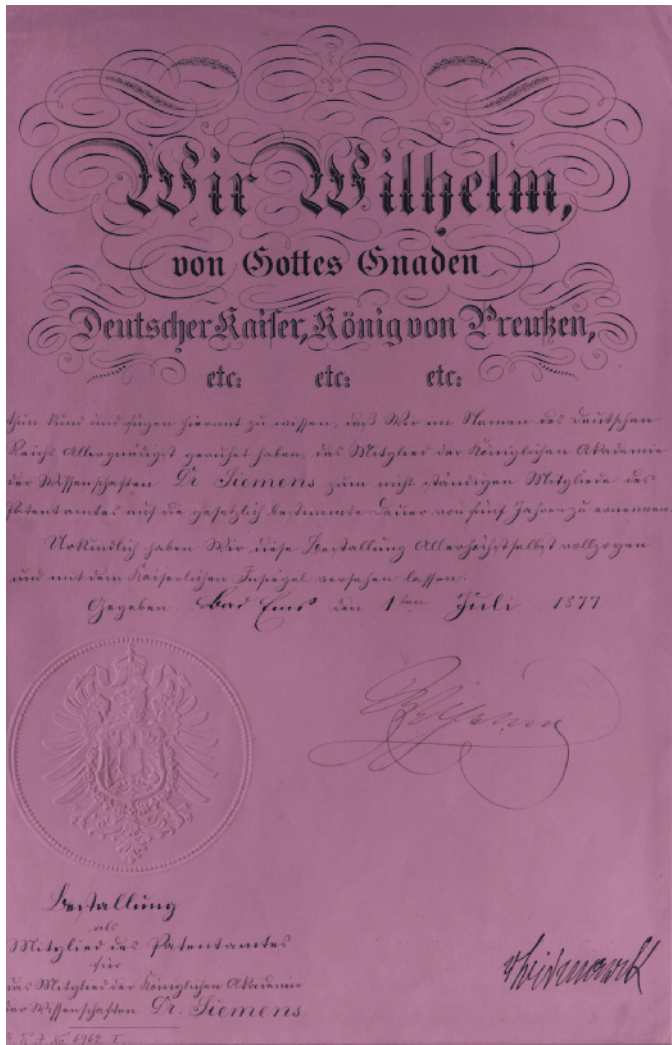 Wir Wilhelm,
von Gottes Gnaden
Deutscher Kaiser, König von Preußen,
etc: etc: etc:
thun kund und fügen hiermit zu wissen, daß Wir im Namen des Deutschen
Reichs Allergnädigst geruhet haben, das Mitglied der Königlichen Akademie
der Wissenschaften Dr. Siemens zum nicht ständigen Mitgliede des
Patentamtes auf die gesetzlich bestimmte Dauer von fünf Jahren zu ernennen.
Urkundlich haben Wir diese Bestallung Allerhöchstselbst vollzogen
und mit dem Kaiserlichen Insiegel versehen lassen.
Gegeben Bad Ems den 1ten Juli 1877.
Wilhelm
Bestallung
als
Mitglied des Patentamtes
für
das Mitglied der Königlichen Akademie
der Wissenschaften Dr. Siemens.
v Bismarck
R. K. A. No 6962 I.